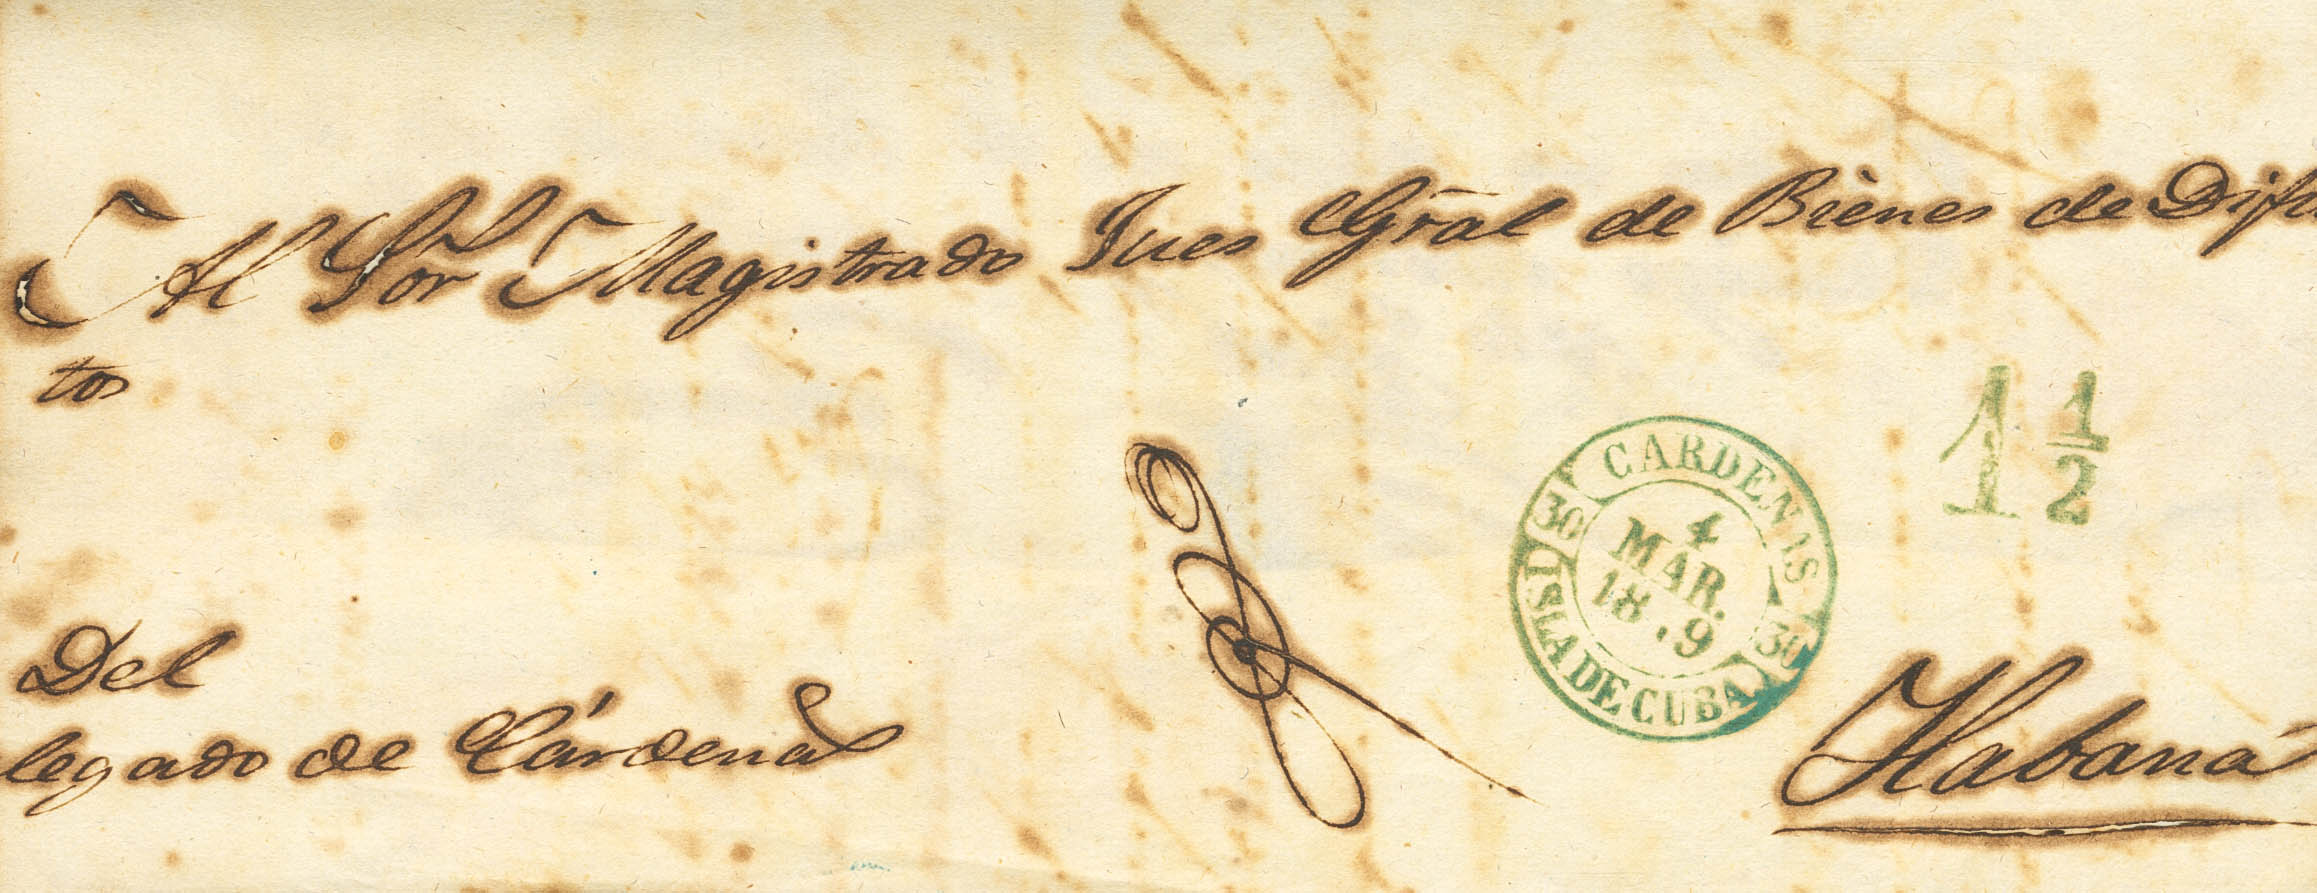 Al Sor Magistrado Jues Gñal de Bienes de Difun
tos
1 1/2
CARDENAS
30 30
4
MAR.
18 . 9
ISLA DE CUBA.
Del
legado de Cárdenas
Habana